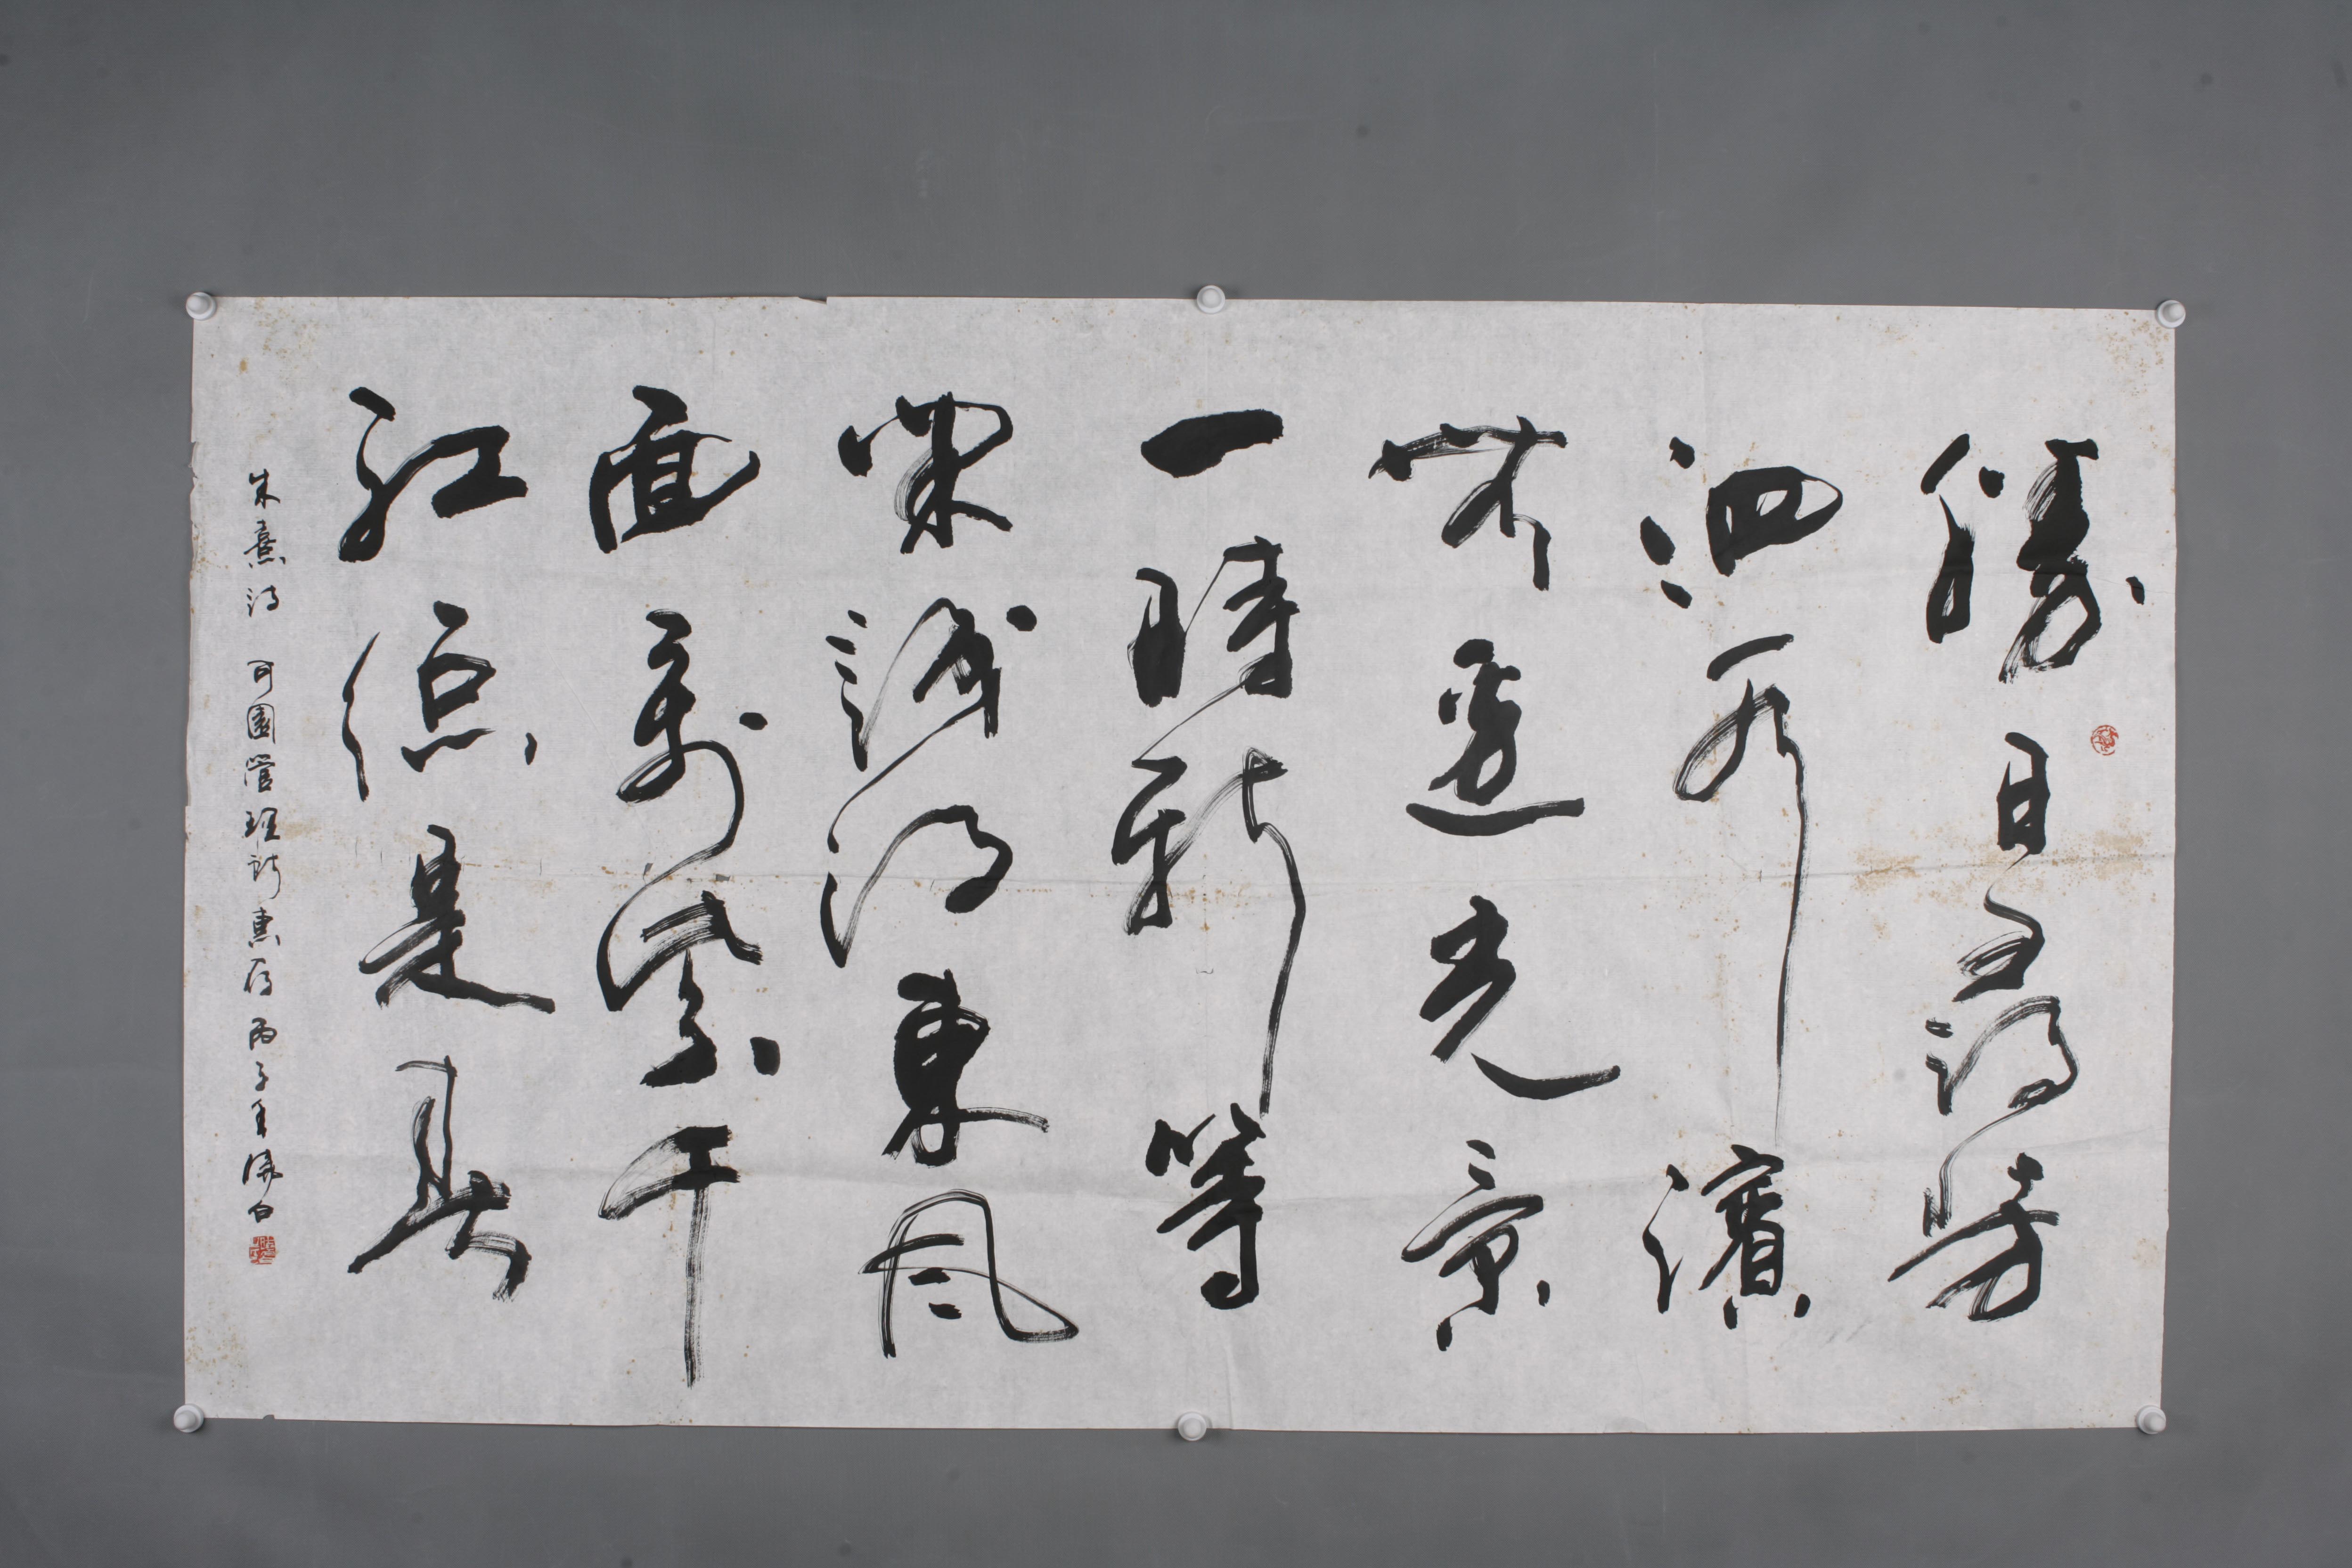 勝日尋芳
泗水濱
無邊光景
一時新等
閑識得東風
面萬紫千
紅總是春
朱熹詩 可園管理所惠存 丙子年